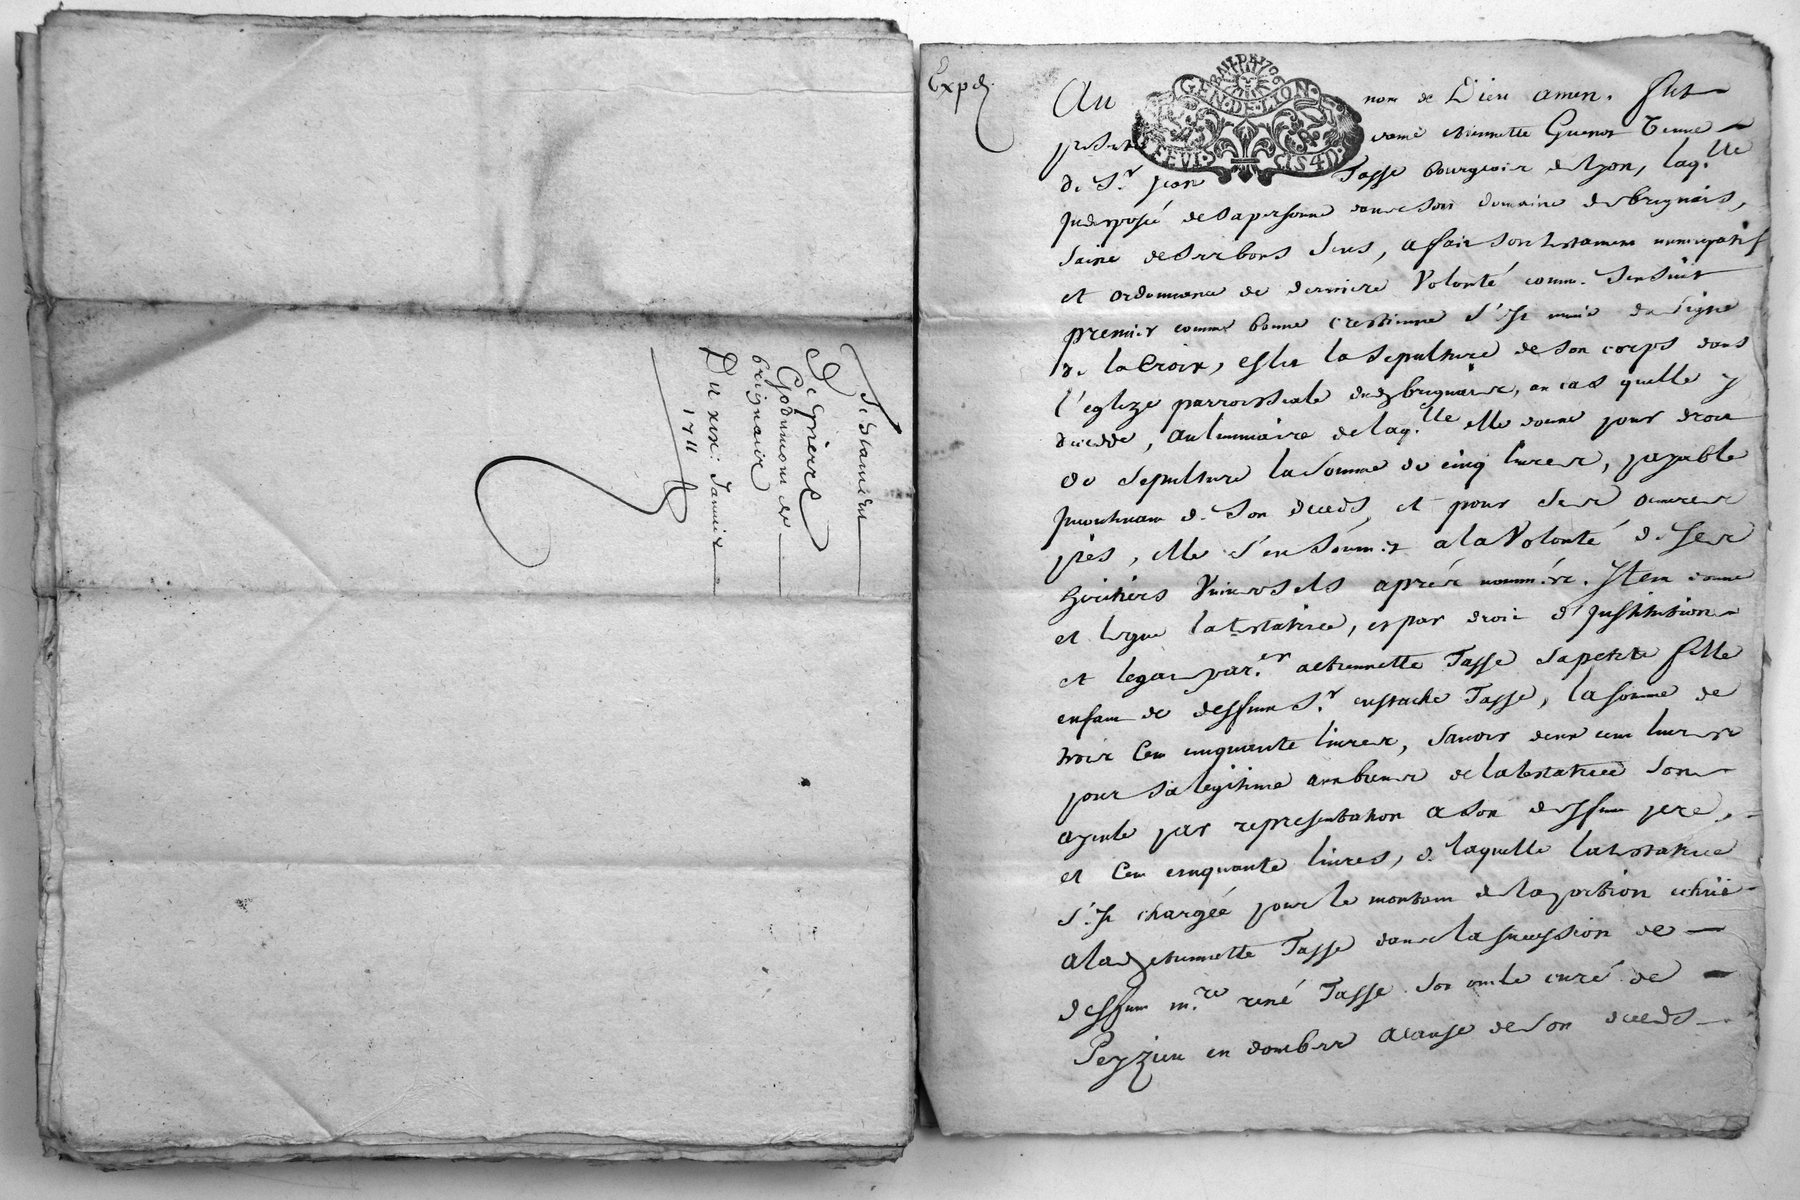 Testament
De pierre
Godemont de
brignaix
Du xixe: Janvier
1711
Expd.
BAIL DE 1706
GEN·DE·LION·
FEVI· CIS4D
Au nom de Dieu amen. fut
presente dame etiennette Guenot veuve
de Sr. jean Tasse bourgeois de lyon, laq.lle
jndisposée de sa personne dans son domaine de brignais,
saine de ses bons sens, a fait son testament nuncupatif
et ordonnance de derniere Volonté comme sensuit
premier comme bonne crestienne s'est munie du signe
de la Croix, eslit la sepulture de son corps dans
l'eglize parroissiale dud brignais, en cas quelle y
decedde, au luminaire de laq.lle elle donne pour droit
de sepulture la somme de cinq livres, payable
jncontinant de son deceds, et pour ses oeuvres
pies, elle s'en soumet a la Volonté de ses
heritiers Universels aprés nommés. Jtem donne
et legue la testatrice, et par droit d'justitution
et legat par.er a etiennette Tasse sa petite fille
enfant de deffunt Sr. eustache Tasse, la somme de
trois Cent cinquante livres, savoir deux cent livres
pour sa legitime aux biens de la testatrice son
ayeule par representation a son deffunt pere,
et Cent cinquante livres, de laquelle la testatrice
s'est chargée pour le montant de la portion echüe
a lad etiennette Tasse dans la succession de
deffunt m.re rené Tasse son oncle curé de
Peyzieu en dombes a cause de son deceds